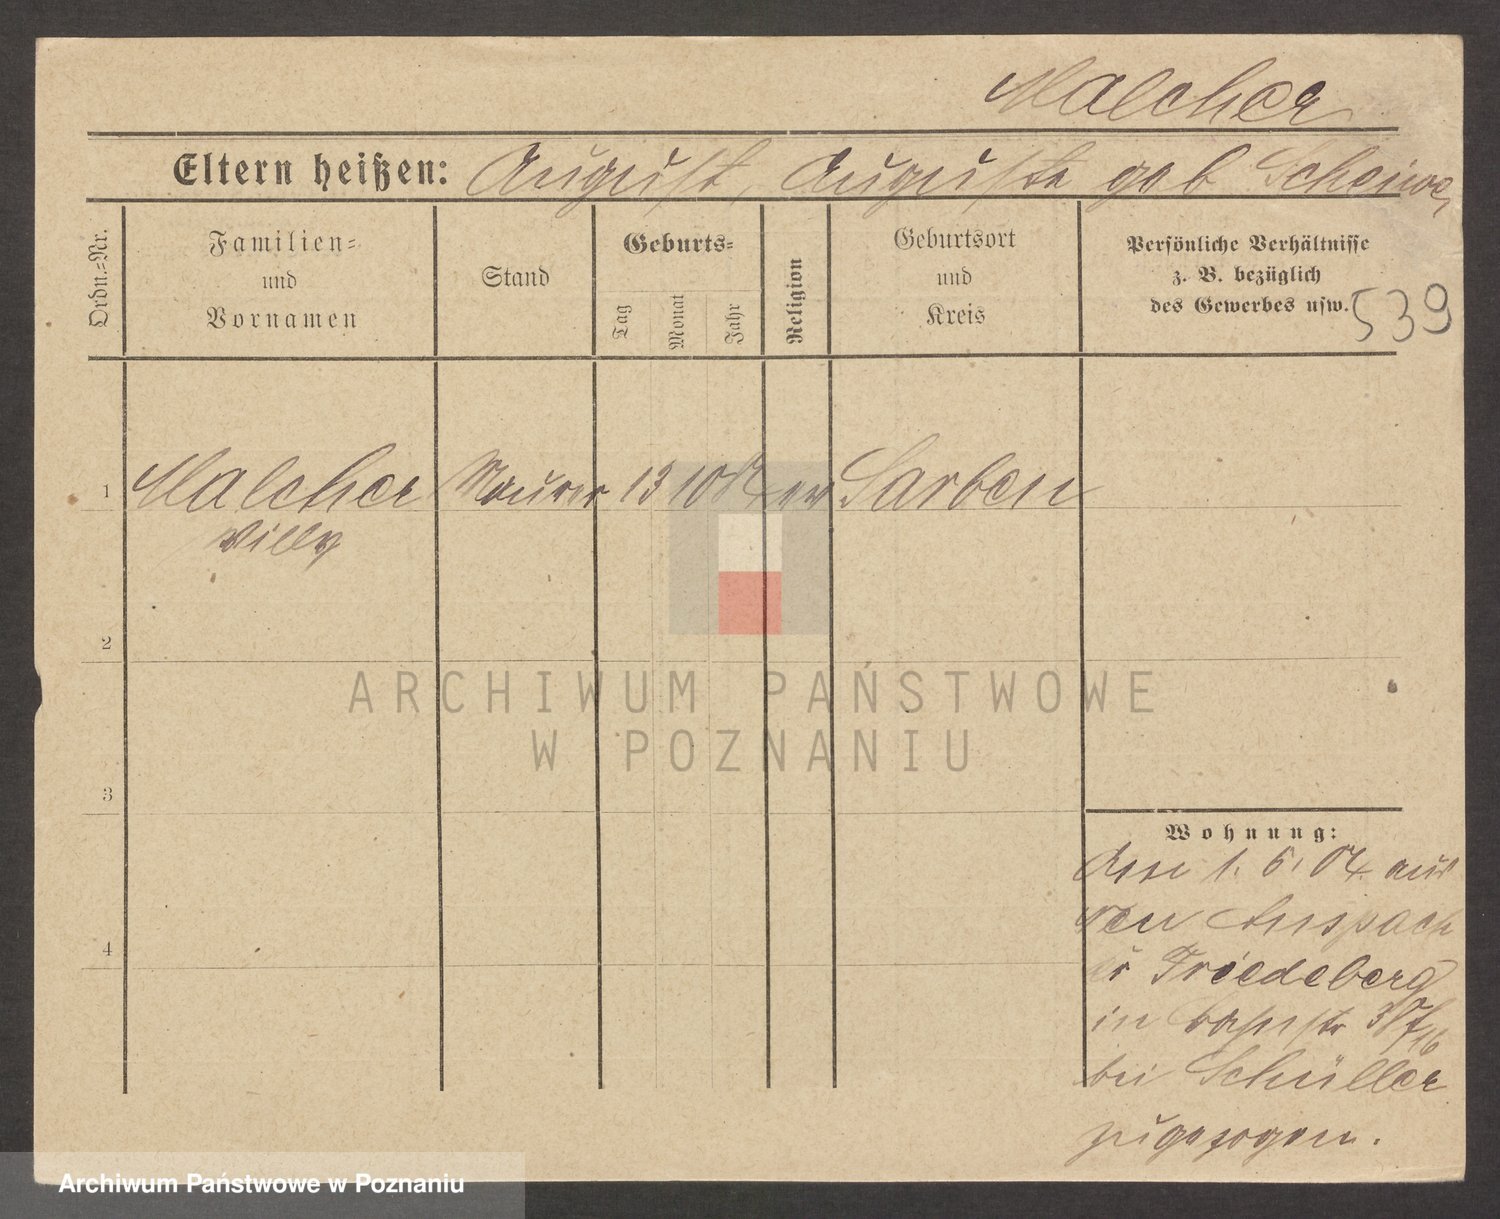 Malcher
Eltern heißen: August Auguste geb
Ordn.=Nr.
Familien=
und
Vornamen
Stand
Geburts=
Tag
Monat
Jahr
Religion
Geburtsort
und
Kreis
Persönliche Verhältnisse
z. B. bezüglich
des Gewerbes usw.
539
1 Malcher Maurer 13 10 87 ev Sarben
Willy
2
3
4
Wohnung:
1. 6. 04 aus
Friedeberg
in
bei Schüller
zugezogen.
ARCHIWUM PAŃSTWOWE
W POZNANIU
Archiwum Państwowe w Poznaniu